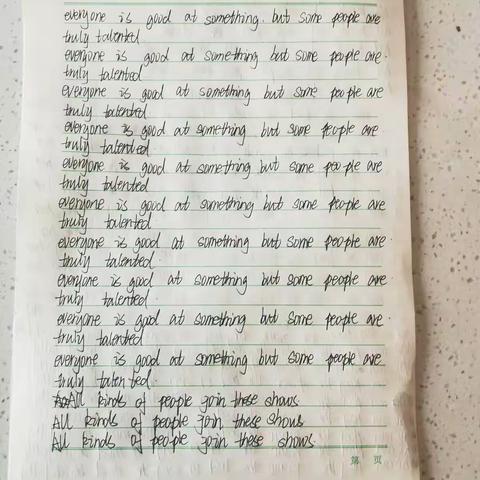 everyone is good at something, but some people are
truly talented
everyone is good at something but some people are.
truly talented
everyone is good at something but some people are
truly talented
everyone is good at something but some people are
truly talented
everyone is good at something but some people are
truly talented
everyone is good at something but some people are
truly talented
everyone is good at something but some people are.
truly talented.
everyone is good at something but some people are
truly talented.
everyone is good at something but some people are.
truly talented
everyone is good at something but some people are
truly talented.
All kinds of people join these shows.
All kinds of people join these shows
All kinds of people join these shows.
第 页